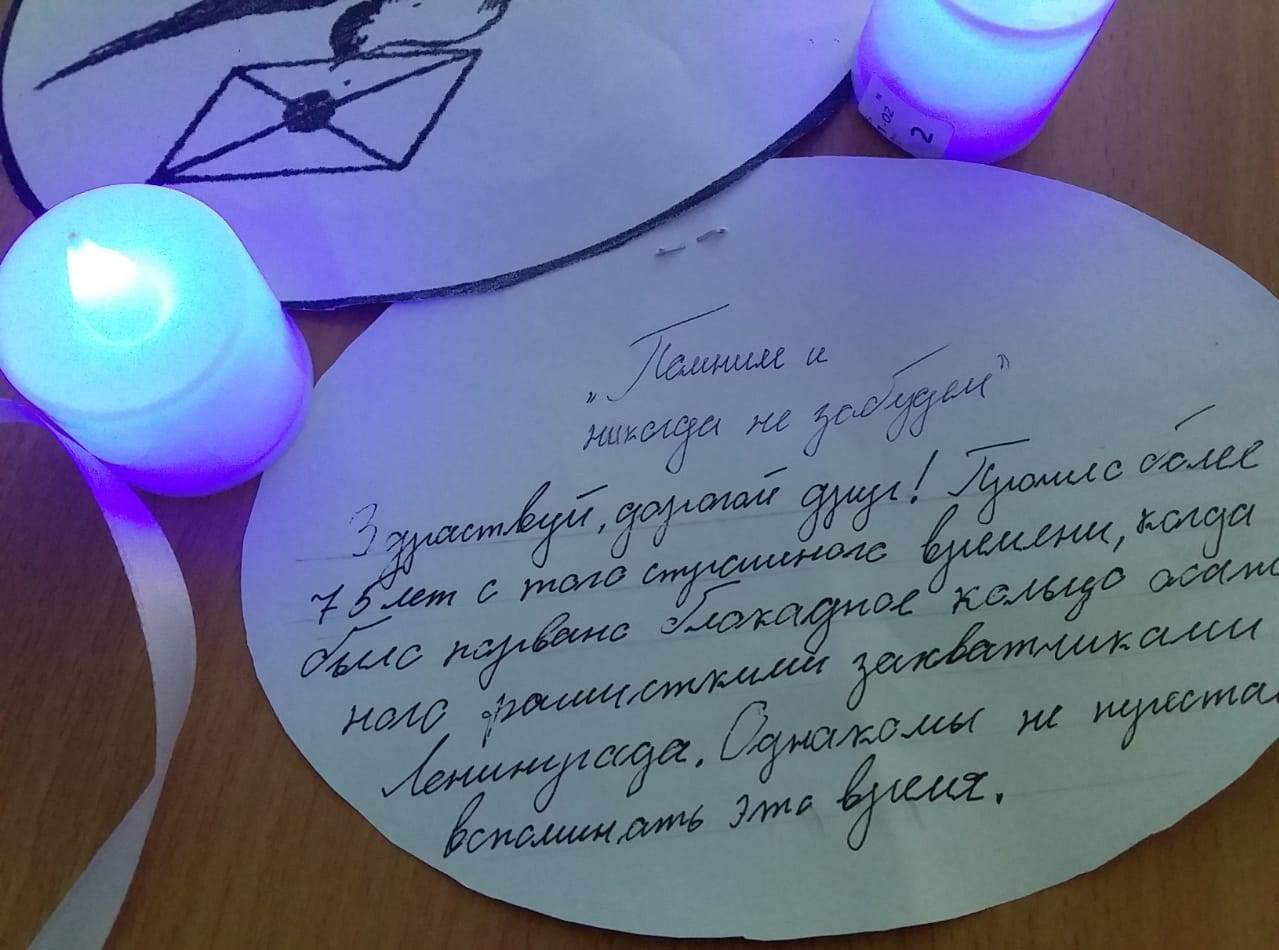 2
„Помним и
никогда не забудем"
Здраствуй, дорогой друг! Прошло более
75 лет с того страшного времени, когда
было порвано блокадное кольцо осаж
ного фашисткими захватчиками
Ленинграда. Однако мы не переста
вспоминать это время.